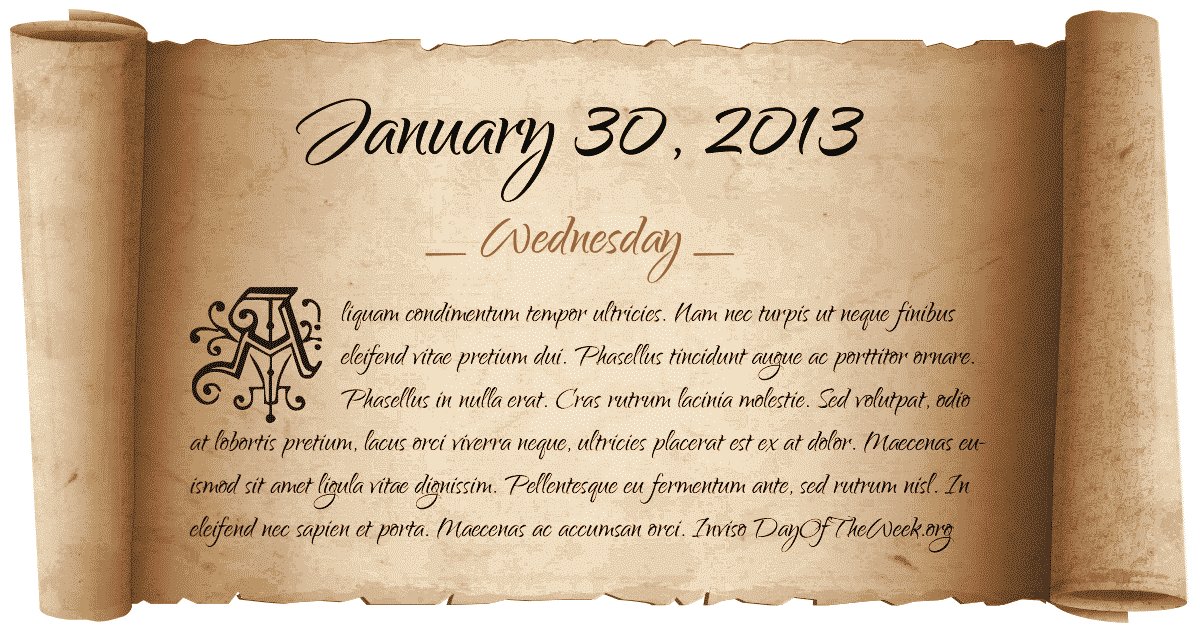 January 30, 2013
Wednesday
Aliquam condimentum tempor ultricies. Nam nec turpis ut neque finibus
eleifend vitae pretium dui. Phasellus tincidunt augue ac porttitor ornare.
Phasellus in nulla erat. Cras rutrum lacinia molestie. Sed volutpat, odio
at lobortis pretium, lacus orci viverra neque, ultricies placerat est ex at dolor. Maecenas eu-
ismod sit amet ligula vitae dignissim. Pellentesque eu fermentum ante, sed rutrum nisl. In
eleifend nec sapien et porta. Maecenas ac accumsan orci. Inviso DayOfTheWeek.org